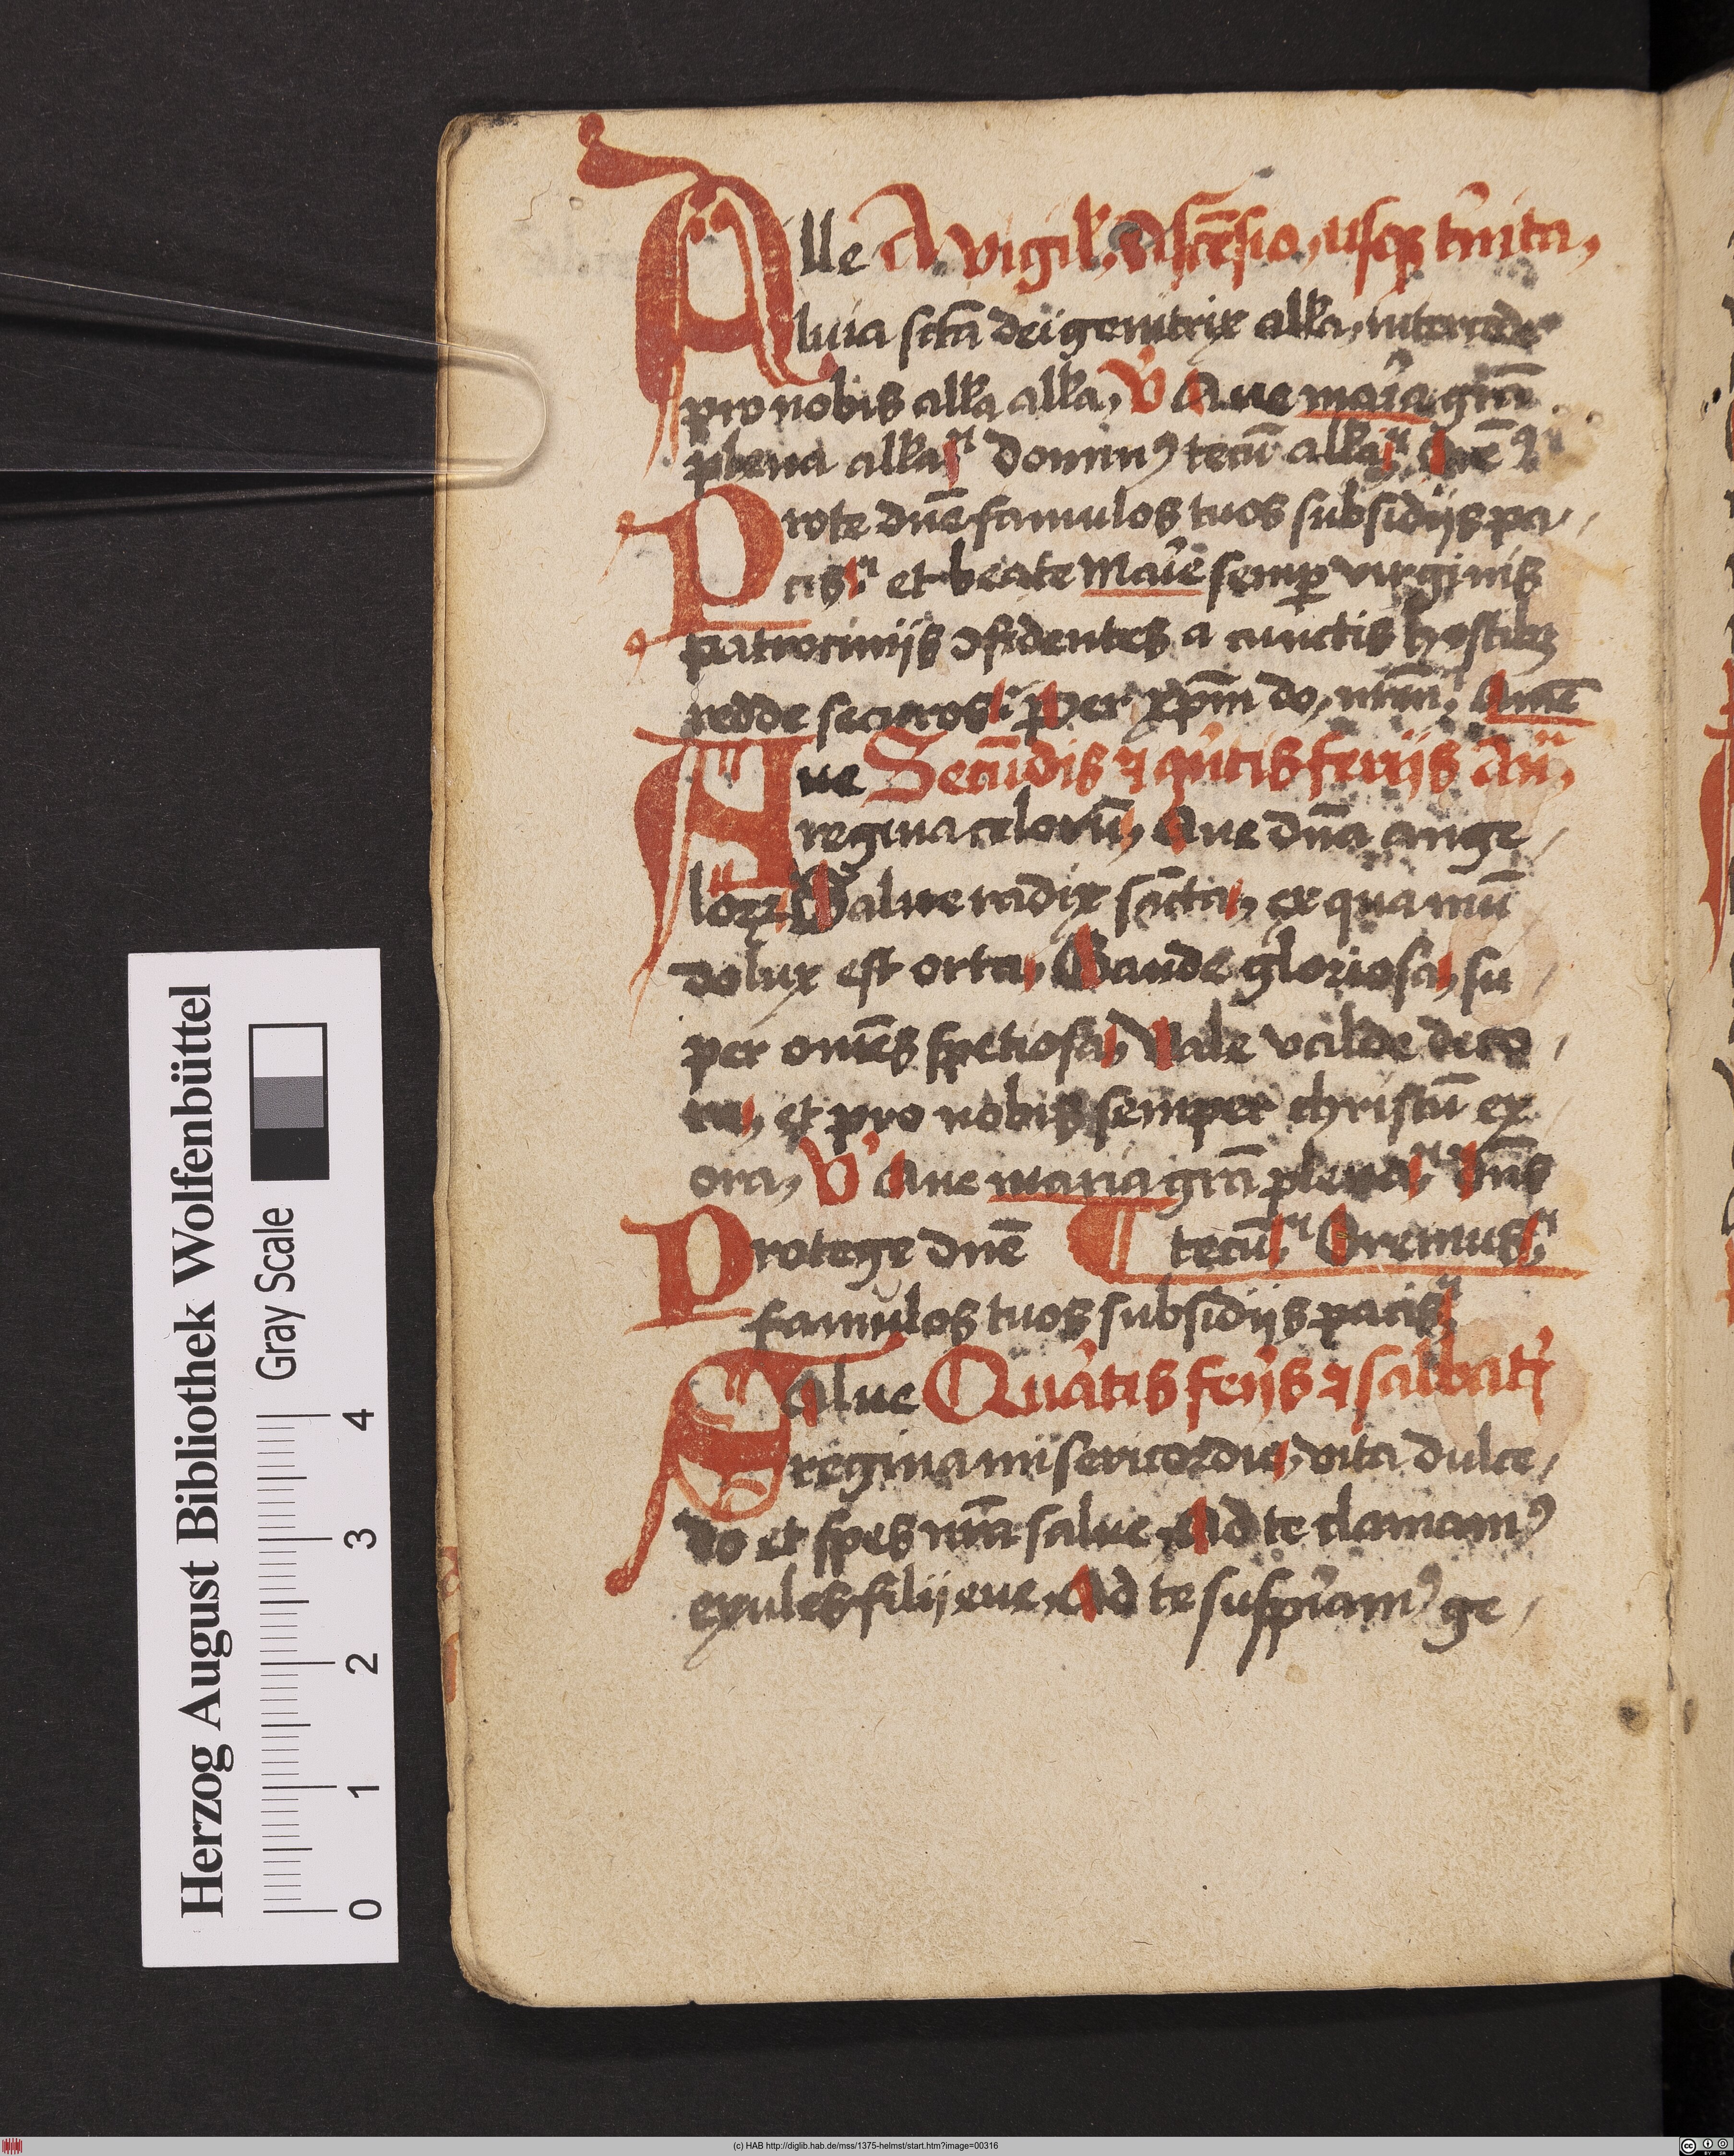 Alle A vigil, Asce͞sio, usq̄ trīnita,
luia sctā dei genitrix allā, intercede
pro nobis allā allā, V Aue maīa grā
plena allā domin⁹ tecū allā
Prote dn̄e famulos tuos subsidijs pa
cis et beate Maīe semp̄ virginis
patrocinijs ꝯfidentes a cunctis hostibꝫ
redde securos per xp̄m do, nr̄m, Amē
Aue Secūdis ⁊ qīntis ferijs An͞,
regina celorū, Aue dn̄a ange
loꝝ Salue radix sācta, ex qua mū
do lux est orta, Gaude gloriosa, su
per om̄es spetiosa, Vale valde deco
ra, et pro nobis semper christū ex
ora, V Aue maria grā plena, Dn̄s
Protege dn̄e ¶ tecū Oremus
famulos tuos subsidijs pacis
Salue Quārtis ferijs ⁊ sabbatī
regina misericordie, vita dulce
do et spes nr̄a salue, Ad te clamam⁹
exules filij eue, Ad te suspīram⁹ ge
Herzog August Bibliothek Wolfenbüttel
Gray Scale
0 1 2 3 4
(c) HAB http://diglib.hab.de/mss/1375-helmst/start.htm?image=00316